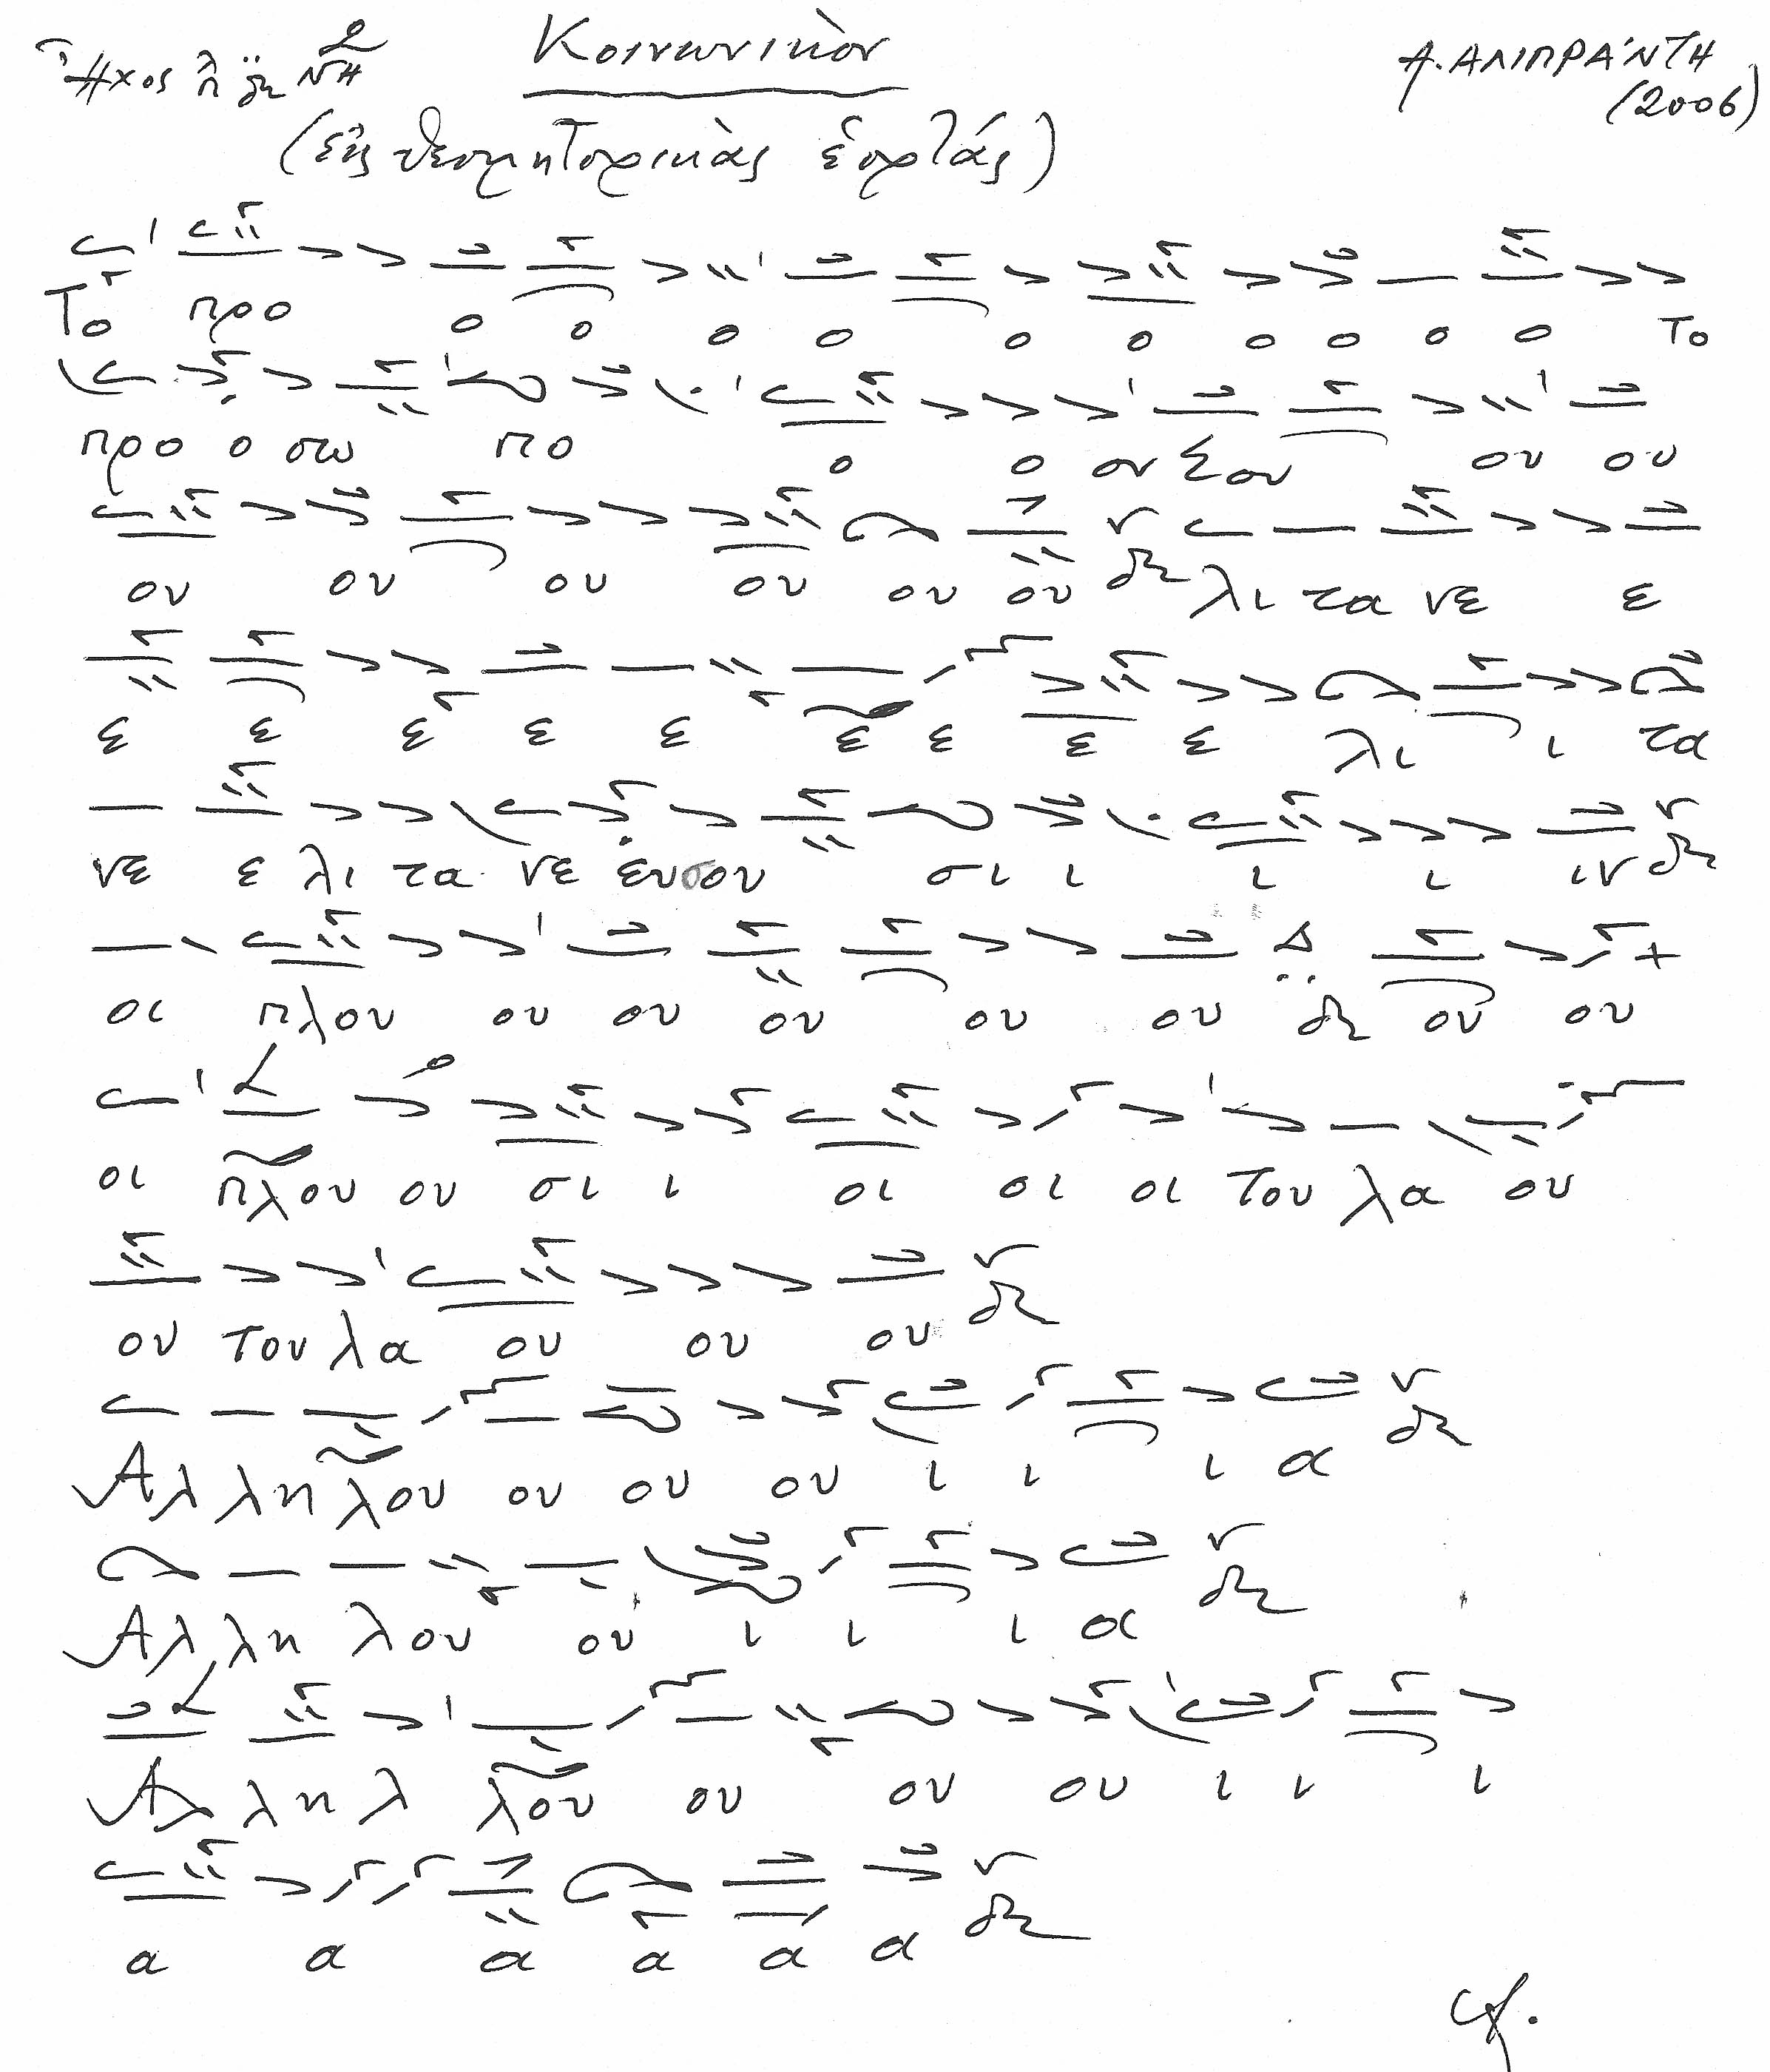 Ἦχος λ π δι Νη Κοινωνικὸν Α. ΑΛΙΠΡΆΝΤΗ
(2006)
(εἰς θεομητορικὰς ἑορτάς)
Το προ ο ο ο ο ο ο ο ο ο ο το
προ ο σω πο ο ο ον Σου ου ου
ου ου ου ου ου ου δι λι τα νε ε
ε ε ε ε ε ε ε ε ε λι ι τα
νε ε λι τα νε ευσου σι ι ι ι ιν δι
οι πλου ου ου ου ου ου δι ου ου
οι πλου ου σι ι οι οι οι του λα ου
ου του λα ου ου ου δι
Αλ λη λου ου ου ου ι ι ι α δι
Αλ λη λου ου ι ι ι α δι
Αλ λη λ λου ου ου ου ι ι ι
α α α α α α δι